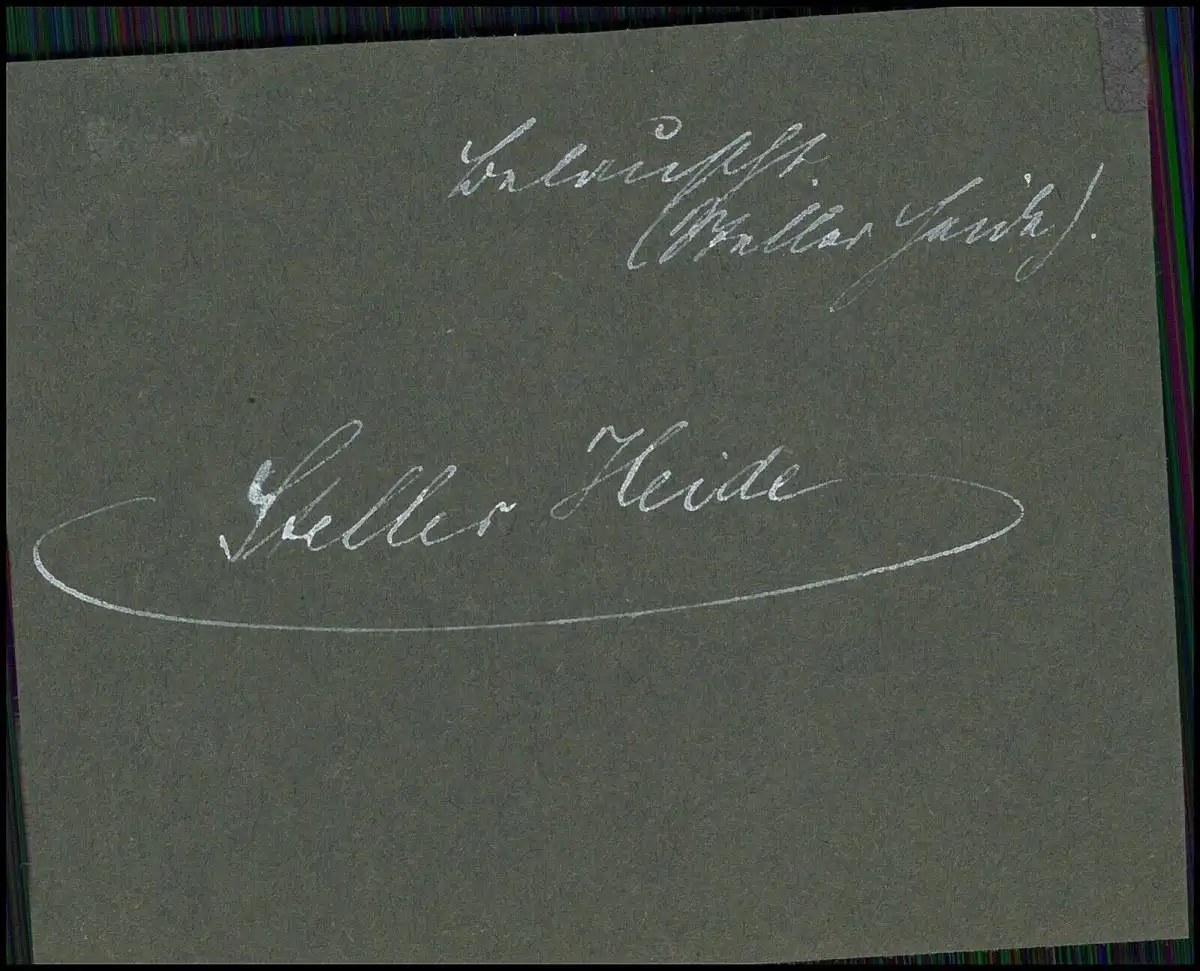 Belauscht.
(Steller Heide).
Steller Heide